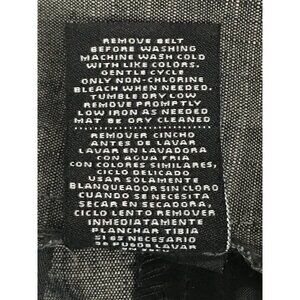 REMOVE BELT
BEFORE WASHING
MACHINE WASH COLD
WITH LIKE COLORS.
GENTLE CYCLE
ONLY NON-CHLORINE
BLEACH WHEN NEEDED.
TUMBLE DRY LOW
REMOVE PROMPTLY
LOW IRON AS NEEDED
MAT BE DRY CLEANED
REMOVER CINCHO
ANTES DE LAVAR
LAVAR EN LAVADORA
CON AGUA FRIA
CON COLORES SIMILARES,
CICLO DELICADO
USAR SOLAMENTE
BLANQUEADOR SIN CLORO
CUANDO SE NECESITA
SECAR EN SECADORA,
CICLO LENTO REMOVER
INMEDIATAMENTE
PLANCHAR TIBIA
SI ES NECESARIO
LAVAR